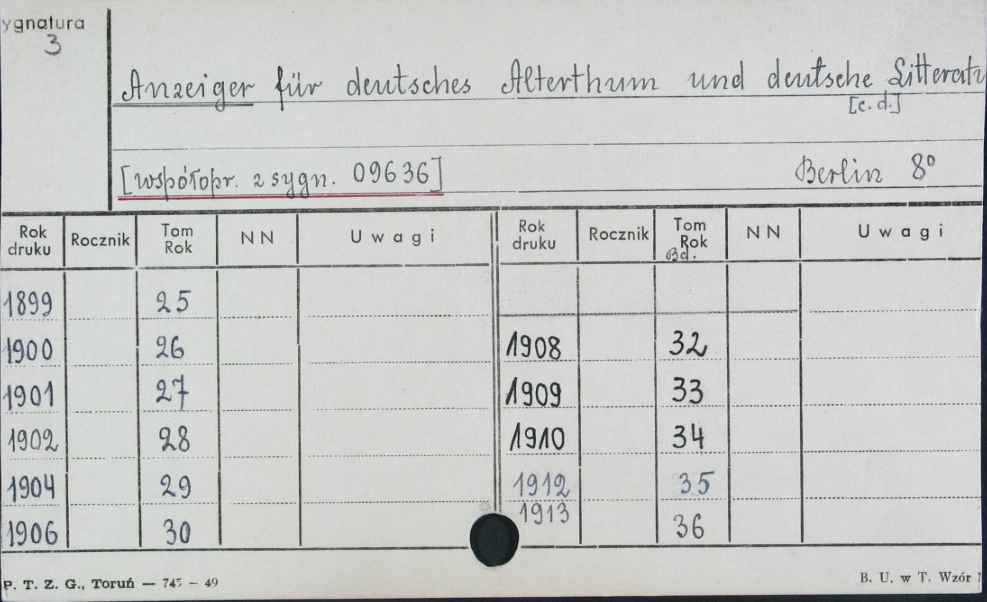 ygnatura
3
Anzeiger für deutsches Alterthum und deutsche Litteratu
[c. d.]
[współopr. z sygn. 09636] Berlin 8°
Rok druku Rocznik Tom Rok NN Uwagi Rok druku Rocznik Tom Rok Bd. NN Uwagi
1899 25
1900 26 1908 32
1901 27 1909 33
1902 28 1910 34
1904 29 1912 35
1906 30 1913 36
P. T. Z. G., Toruń — 745 – 49 B. U. w T. Wzór